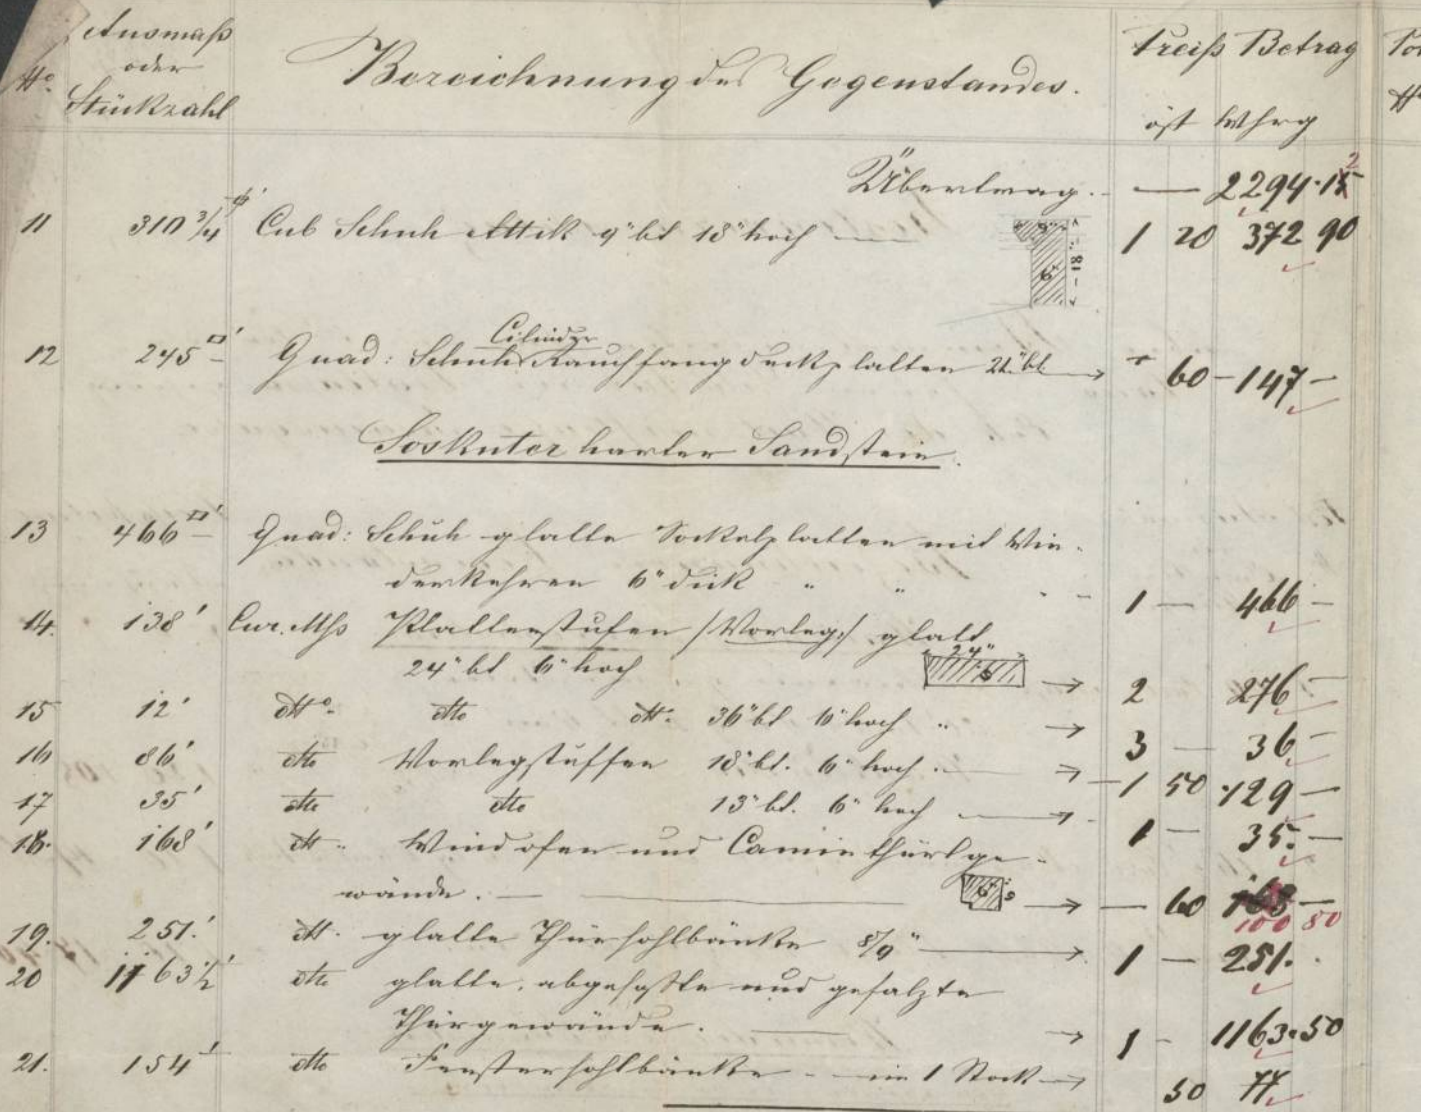 No. Ausmaß oder Stückzahl Bezeichnung des Gegenstandes. Preiß Betrag
öst Whrg
Übertrag. — 2294·15 2
11 310 3/4 Cub Schuh Attik 9" bt 18" hoch — 9" 6" 18" 1 20 372 90
12 245 □' Quad: Schuh Cilinder Rauchfangdeckplatten 21" bt → 60 — 147 —
Söskuter harter Sandstein.
13 466 □' Quad: Schuh glatte Sockelplatten mit Wie-
derkehren 6" dick " " 1 — 466 —
14. 138' Cur. Mss Plattenstufen /Vorleg:/ glatt
24" bt 6" hoch 24" 6 → 2 276 —
15 12' dtto dtto dtto 36" bt 6" hoch " → 3 — 36 —
16 86' dtto Vorlegstuffen 18" bt. 6" hoch. → 1 50 129 —
17 35' dtto dtto 13" bt. 6" hoch → 1 — 35. —
18. 168' dtto Windofen und Caminthürlge-
wände. — 6" 9 → — 60 168 —
100 80
19. 251.' dtt. glatte Thürsohlbänke 8/9" → 1 — 251.
20 1163 1/2' dtto glatte, abgefaßte und gefalzte
Thürgewände. — → 1 - 1163·50
21. 154' dtto Fenstersohlbänke - im 1 Stock → 50 77